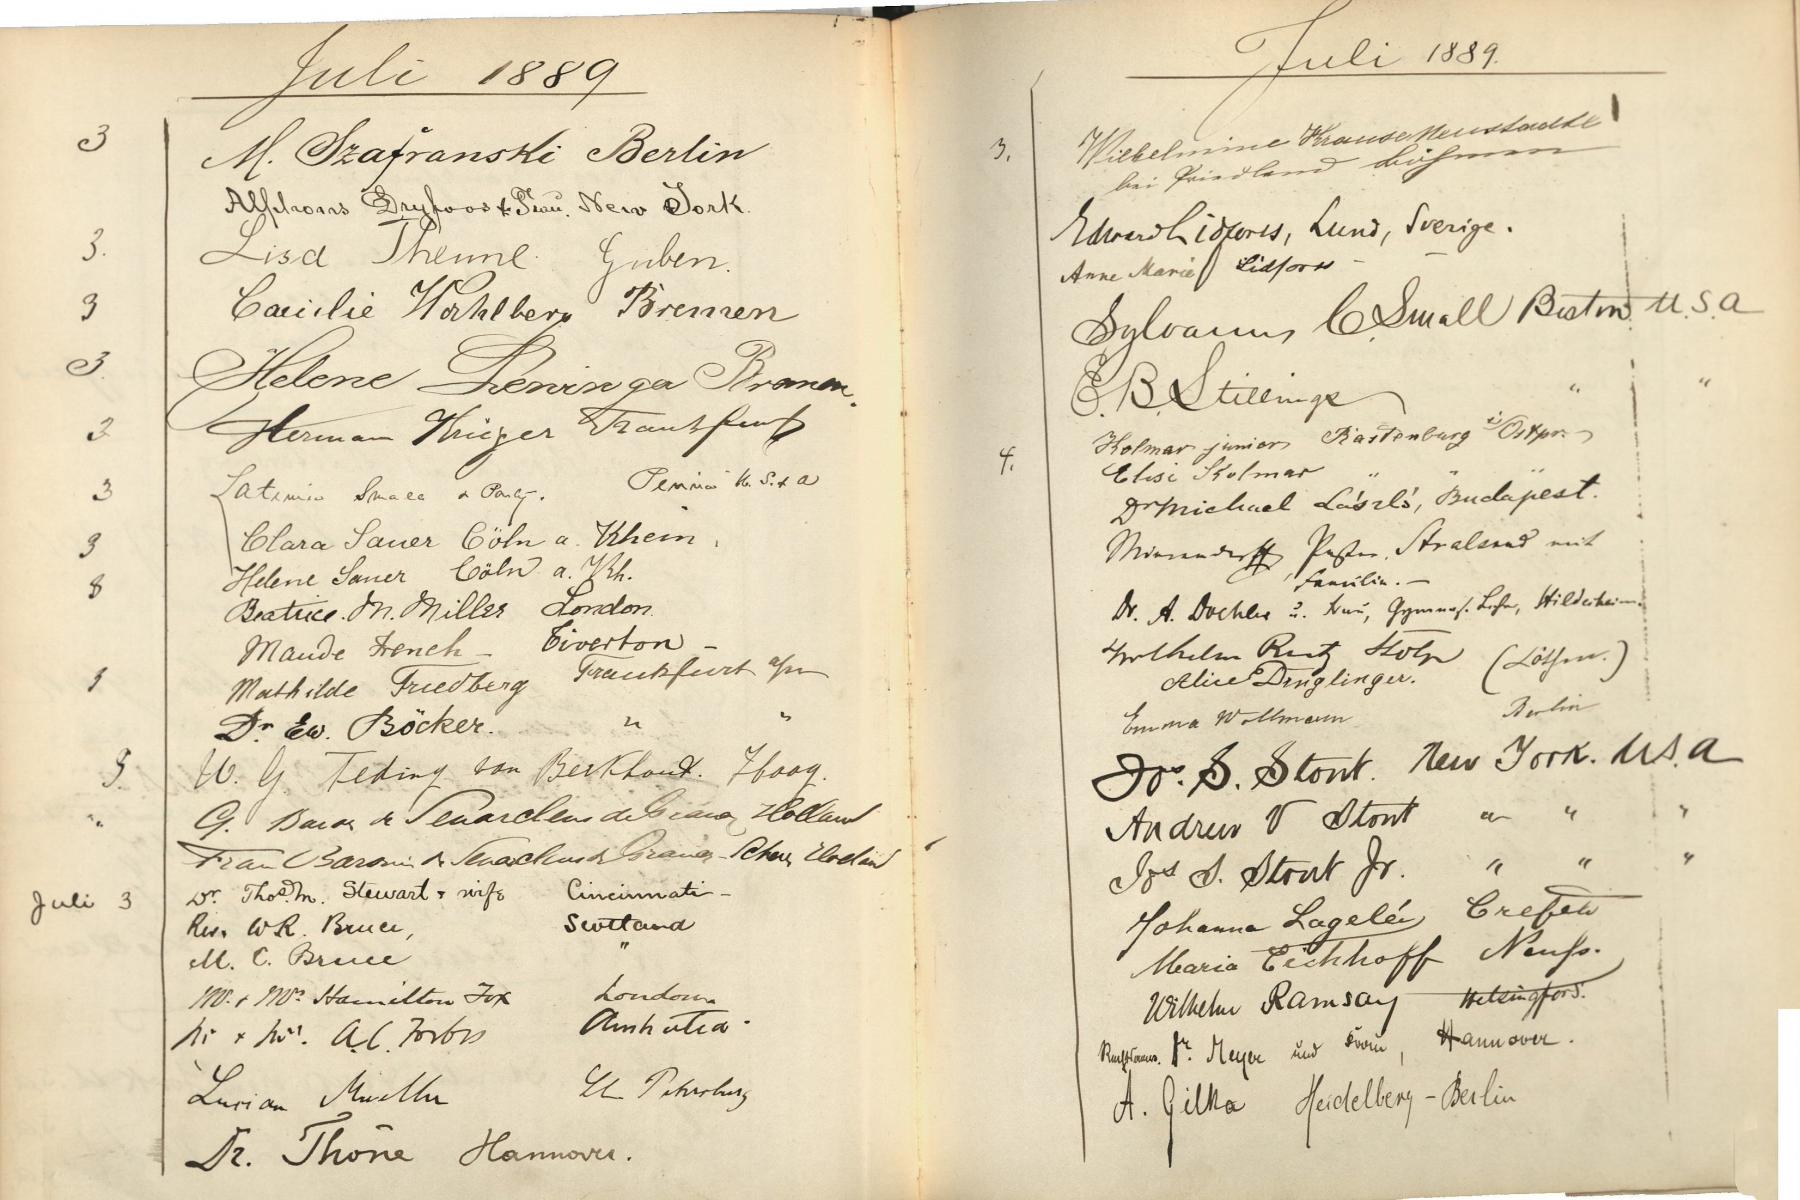 Juli 1889
3 M. Szafranski Berlin
Alphons Dryfoos & Frau. New York.
3. Lisa Theml Guben.
3 Caecilie Wahlberg Bremen
3. Helene Leninga Bremen.
3 Herman Krüger Frankfurt
3 Small & Party. Penna U. S. A
3 Clara Sauer Cöln a. Rhein.
Helene Sauer Cöln a. Rh.
3 Beatrice. M. Miller London.
Maude French - Tiverton -
3 Mathilde Friedberg Frankfurt a/m
Dr. Ew. Böcker. " "
3. W. G. Teding van Berkhout. Haag.
" G. Baron de Senarclens de Grancy Holland
Frau Baronin de Senarclens de Grancy Holland
Juli 3 Dr. Thos. M. Stewart & wife Cincinnati -
Rev. W R. Bruce, Scotland
M. C. Bruce "
Mr. & Mrs Hamilton Fox London
Mr & Mrs. A. C. Forbes
Lucian Mueller St Petersburg
Dr. Thöne Hannover.
Juli 1889.
3. Wilhelmine Krause Neustadtl
bei Friedland Böhmen
Edward Lidforss, Lund, Sverige.
Anne Marie Lidforss - -
Sylvanus C. Small Boston. U. S. A
E. B. Stillings " "
4. Kolmar junior Rastenburg i/Ostpr.
Elise Kolmar " " "
Dr Michael László, Budapest.
Pastor, Stralsund mit
Familie. -
Dr. A. Doehler u. Frau, Gymnas. Lehr, Hildesheim.
Wilhelm Rutz Stolp
Alice Dinglinger.
Emma Wollmann Berlin
Jos. S. Stout. New York. U.S.A
Andrew V Stout " " "
Jos S. Stout Jr. " " "
Johanna Lagelée Crefeld
Maria Eichhoff Neuss.
Wilhelm Ramsay Helsingfors.
Dr. Meyer und Frau, Hannover.
A. Gilka Heidelberg - Berlin